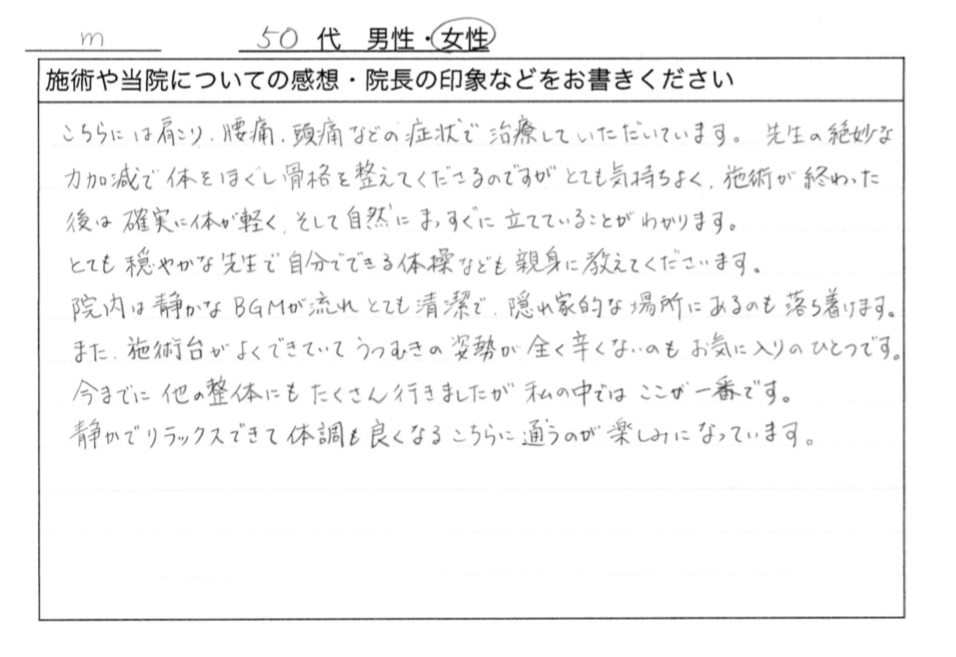 m 50代 男性・女性
施術や当院についての感想・院長の印象などをお書きください
こちらには肩こり、腰痛、頭痛などの症状で治療していただいています。先生の絶妙な
力加減で体をほぐし骨格を整えてくださるのですがとても気持ちよく、施術が終わった
後は確実に体が軽く、そして自然にまっすぐに立てていることがわかります。
とても穏やかな先生で自分でできる体操なども親身に教えてくださいます。
院内は静かなBGMが流れとても清潔で、隠れ家的な場所にあるのも落ち着けます。
また、施術台がよくできていてうつむきの姿勢が全く辛くないのもお気に入りのひとつです。
今までに他の整体にもたくさん行きましたが私の中ではここが一番です。
静かでリラックスできて体調も良くなるこちらに通うのが楽しみになっています。